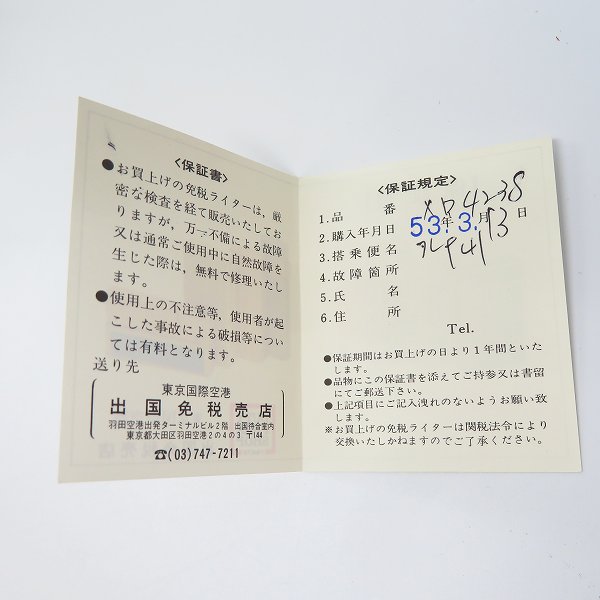 〈保証書〉
●お買上げの免税ライターは，厳
密な検査を経て販売いたしてお
りますが，万一不備による故障
又は通常ご使用中に自然故障を
生じた際は，無料で修理いたし
ます。
●使用上の不注意等，使用者が起
こした事故による破損等につい
ては有料となります。
送り先
東京国際空港
出国免税売店
羽田空港出発ターミナルビル2階 出国待合室内
東京都大田区羽田空港2の4の3 〒144
☎(03)747-7211
〈保証規定〉
1.品番 4238
2.購入年月日 53年3.月13日
3.搭乗便名
4.故障箇所
5.氏名
6.住所
Tel.
●保証期間はお買上げの日より1年間といた
します。
●品物にこの保証書を添えてご持参又は書留
にてご郵送下さい。
●上記項目にご記入洩れのないようお願い致
します。
※お買上げの免税ライターは関税法令により
交換いたしかねますのでご了承ください。